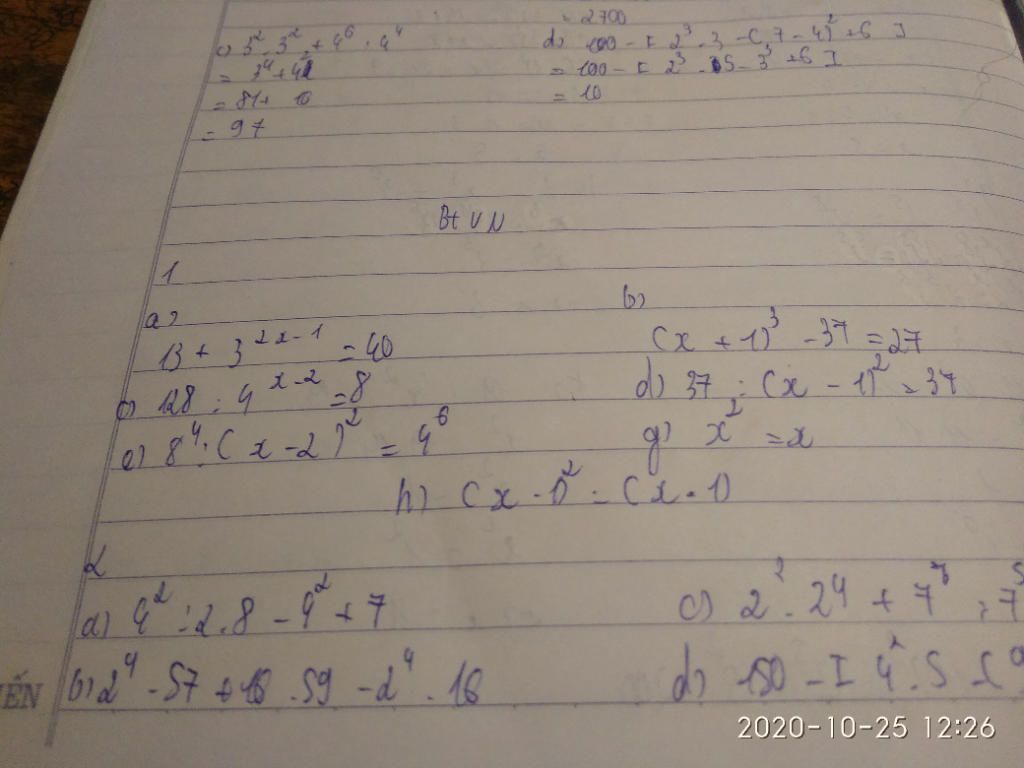 = 2700
c) 3² . 3² + 4⁶ : 4⁴
d) 100 - [ 2³ . 3 - ( 7 - 4)² + 6 ]
= 3⁴ + 4²
= 100 - [ 2³ - 5 - 3³ + 6 ]
= 81 + 16
= 10
= 97
Bt VN
1
a)
b)
13 + 3^{2x-1} = 40
(x + 1)³ - 37 = 27
c) 128 : 4^{x-2} = 8
d) 37 : (x - 1)² = 37
e) 8⁴ : ( x - 2 )² = 4⁶
g) x² = x
h) (x - 1)² = (x - 1)
2
a) 4² : 2 . 8 - 4² + 7
c) 2² . 2⁴ + 7⁷ : 7⁵
b) 2⁴ . 57 + 16 . 59 - 2⁴ . 16
d) 150 - [ 4² . 5 - (9
ẾN
2020-10-25 12:26